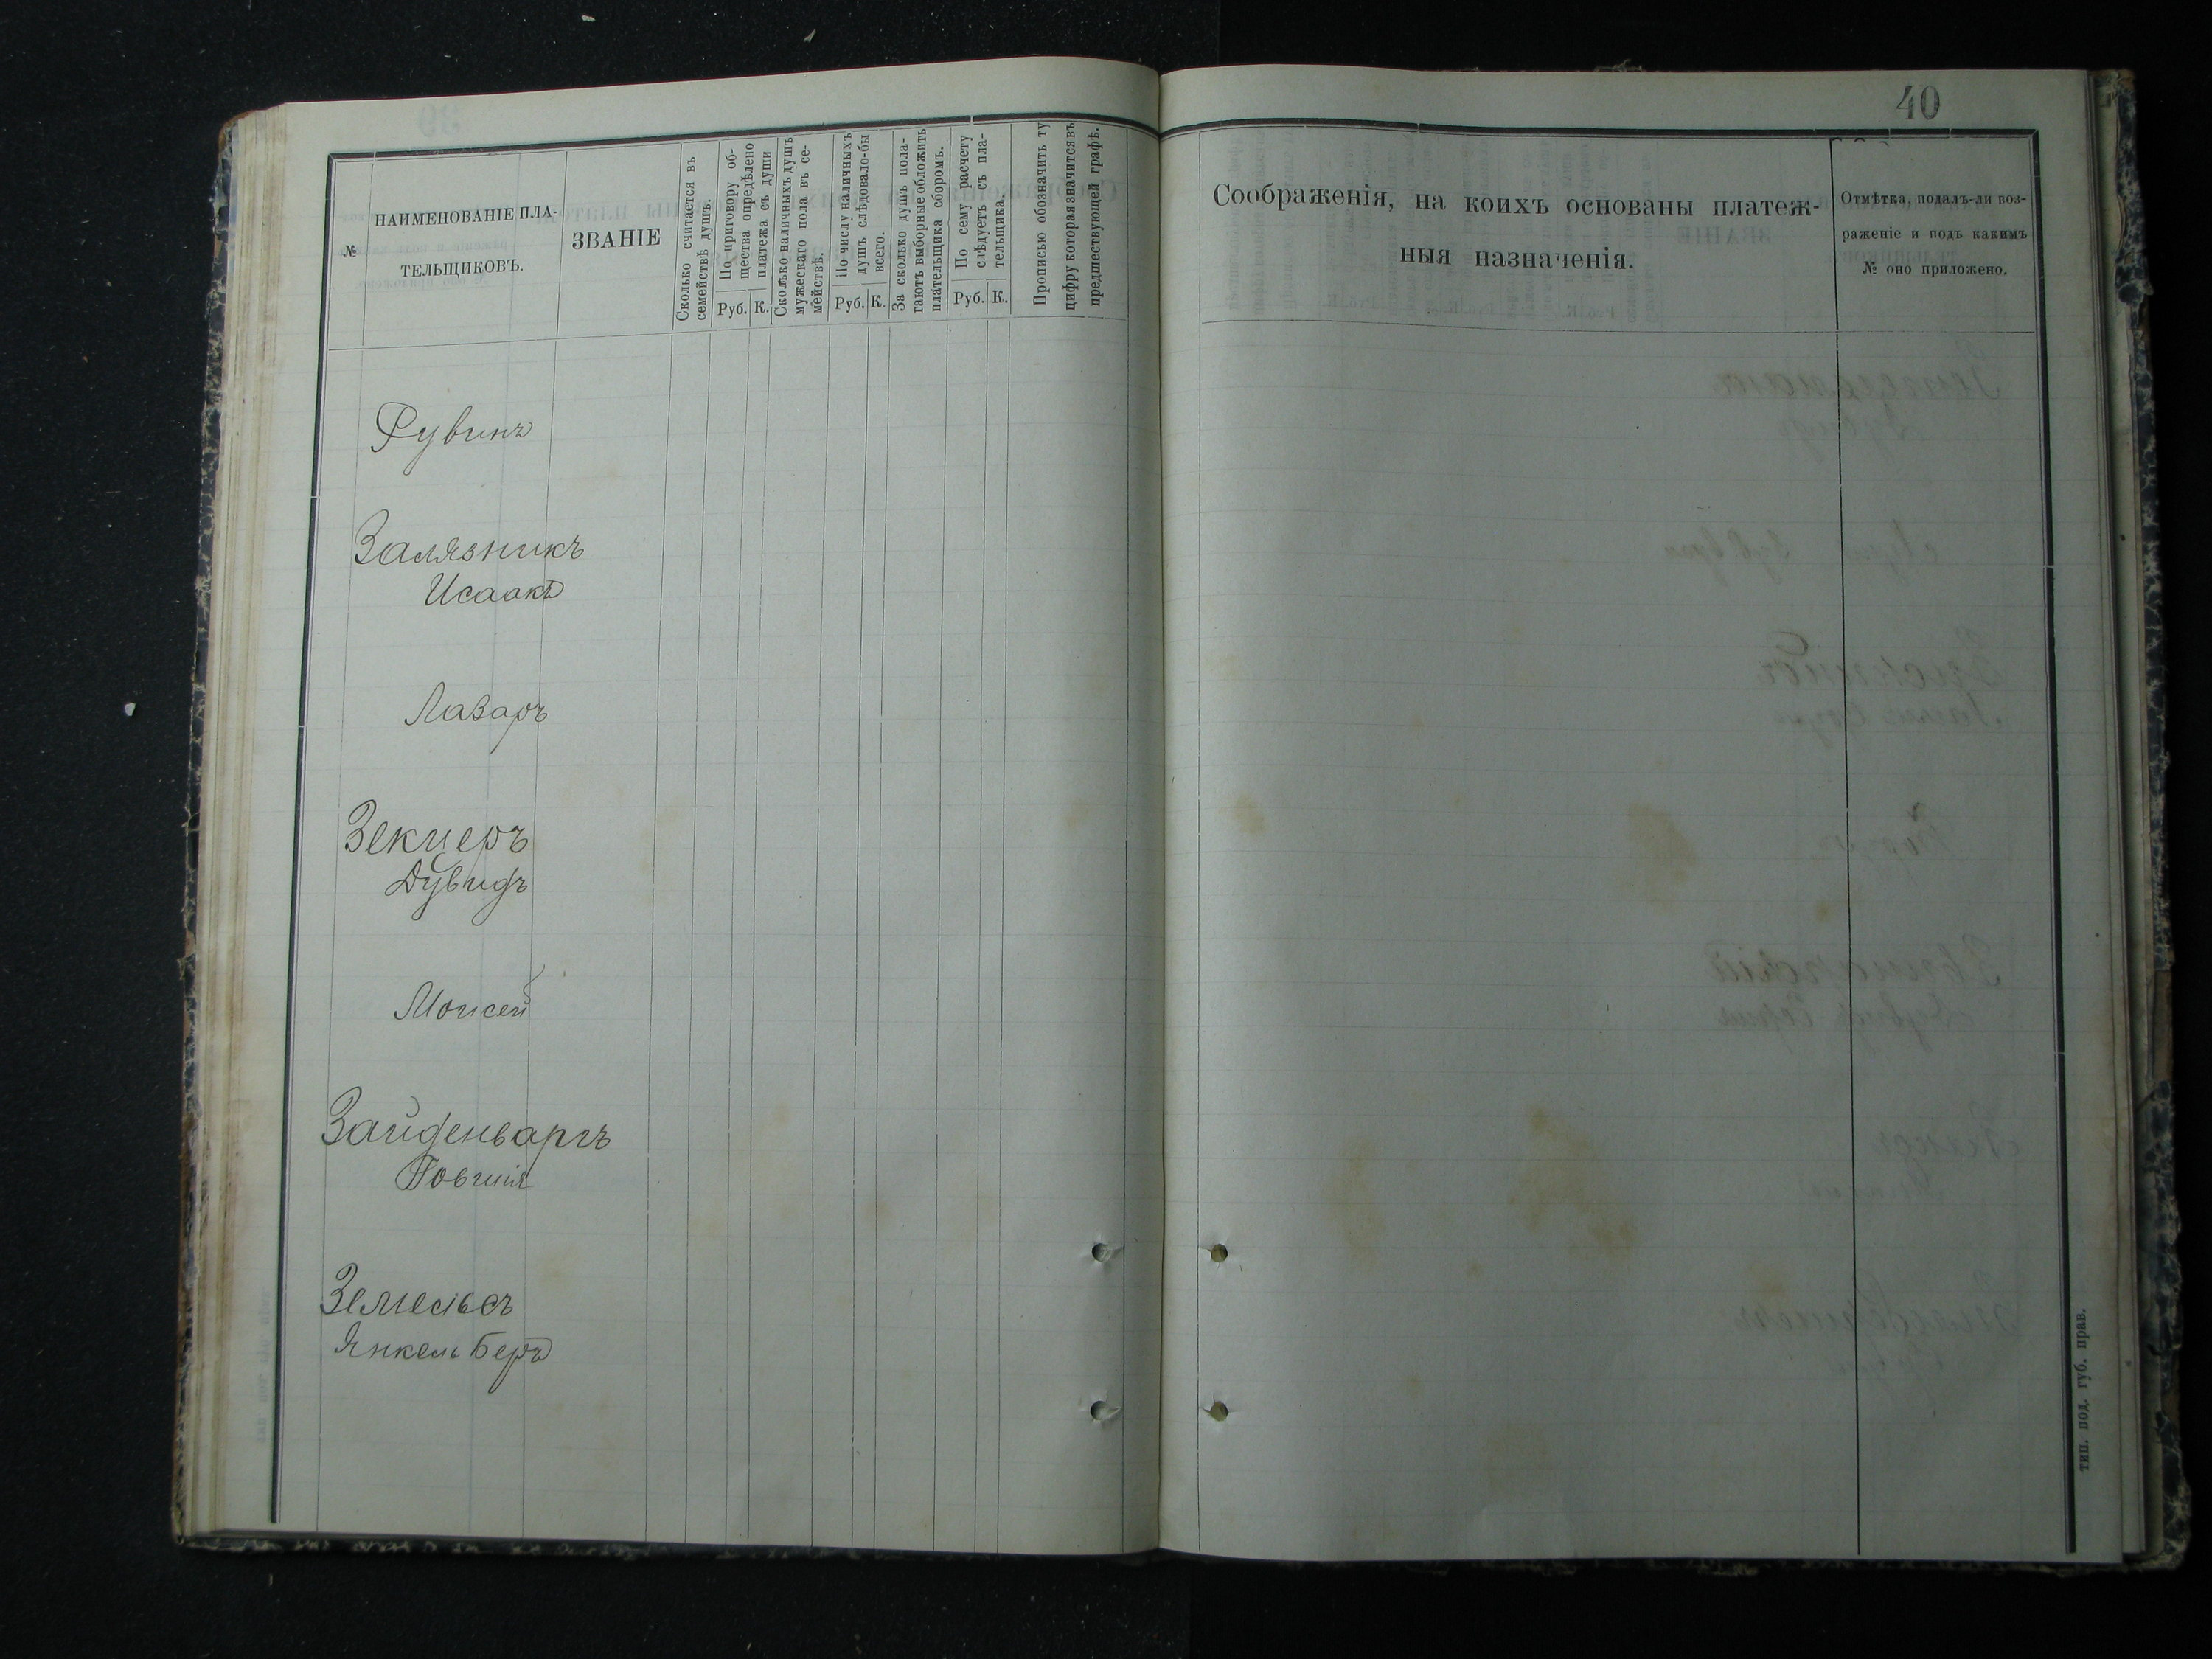 40
№
НАИМЕНОВАНІЕ ПЛА-
ТЕЛЬЩИКОВЪ.
ЗВАНІЕ
Сколько считается въ
семействѣ душъ.
По приговору об-
щества опредѣлено
платежа съ души
Руб. К.
Сколько наличныхъ душъ
мужескаго пола въ се-
мействѣ.
По числу наличныхъ
душъ слѣдовало-бы
всего.
Руб. К.
За сколько душъ пола-
гаютъ выборные обложить
плательщика сборомъ.
По сему расчету
слѣдуетъ съ пла-
тельщика.
Руб. К.
Прописью обозначить ту
цифру которая значится въ
предшествующей графѣ.
Соображенія, на коихъ основаны платеж-
ныя назначенія.
Отмѣтка, подалъ-ли воз-
раженіе и подъ какимъ
№ оно приложено.
Рувинъ
Залязникъ
Исаакъ
Лазаръ
Зекцеръ
Дувидъ
Моисей
Зайденваргъ
Іовшія
Земельсъ
Янкель Беръ
тип. под. губ. прав.